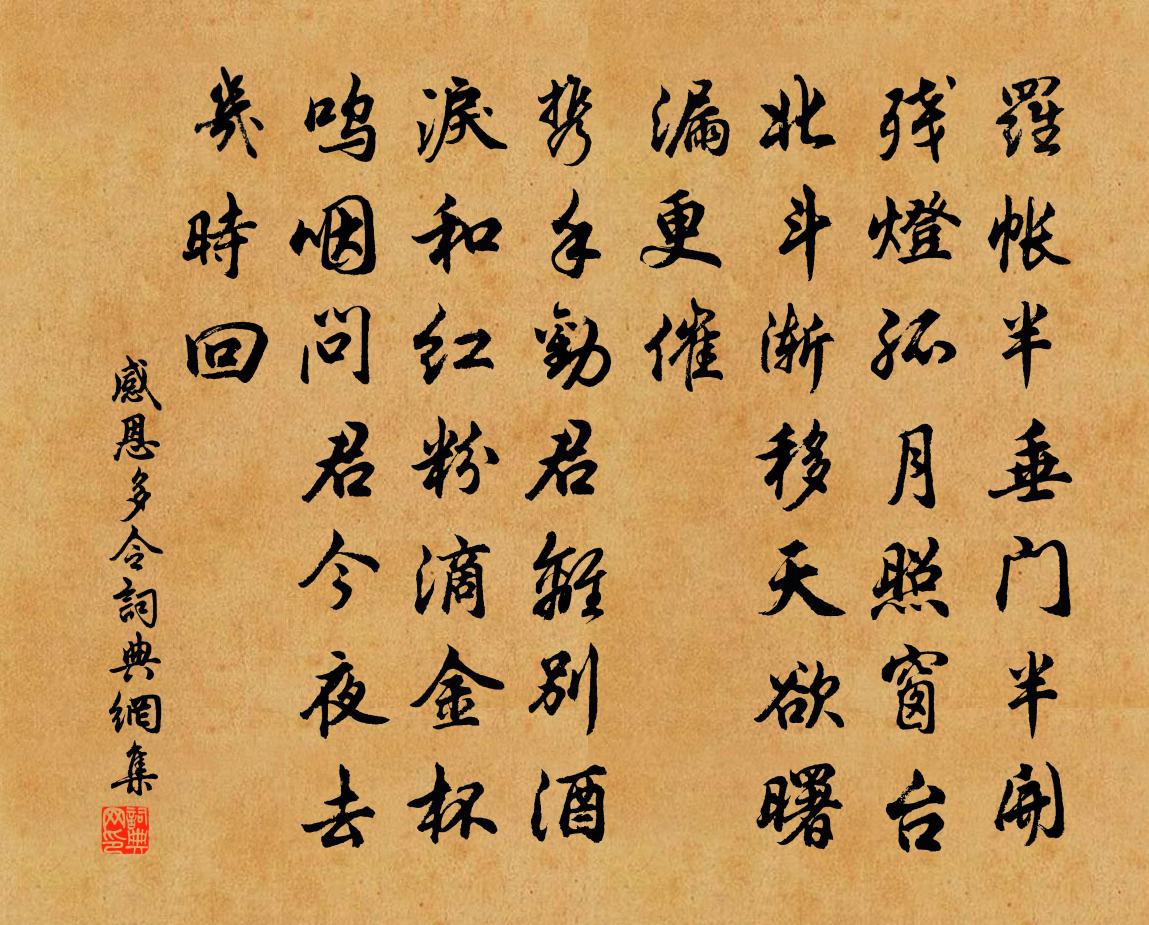 羅帐半垂门半開
残燈孤月照窗台
北斗渐移天欲曙
漏更催
携手勸君離别酒
淚和红粉滴金杯
呜咽问君今夜去
幾時回
感恩多令詞典網集
詞典网印